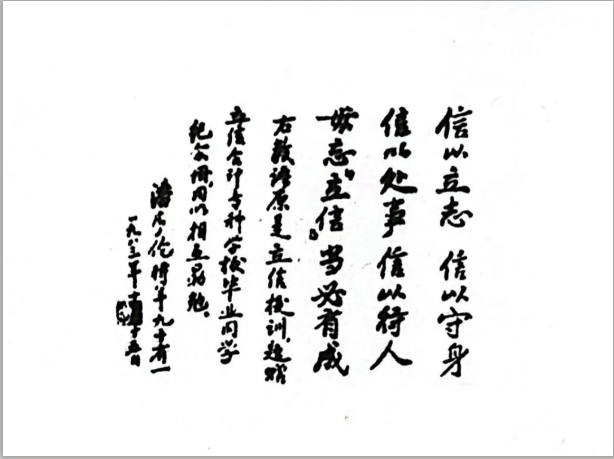 信以立志 信以守身
信以处事 信以待人
毋忘“立信”当必有成
右数语原是立信校训，题赠
立信会计专科学校毕业同学
纪念册，用以相互勖勉。
潘序伦时年九十有一
一九八三年十月十五日